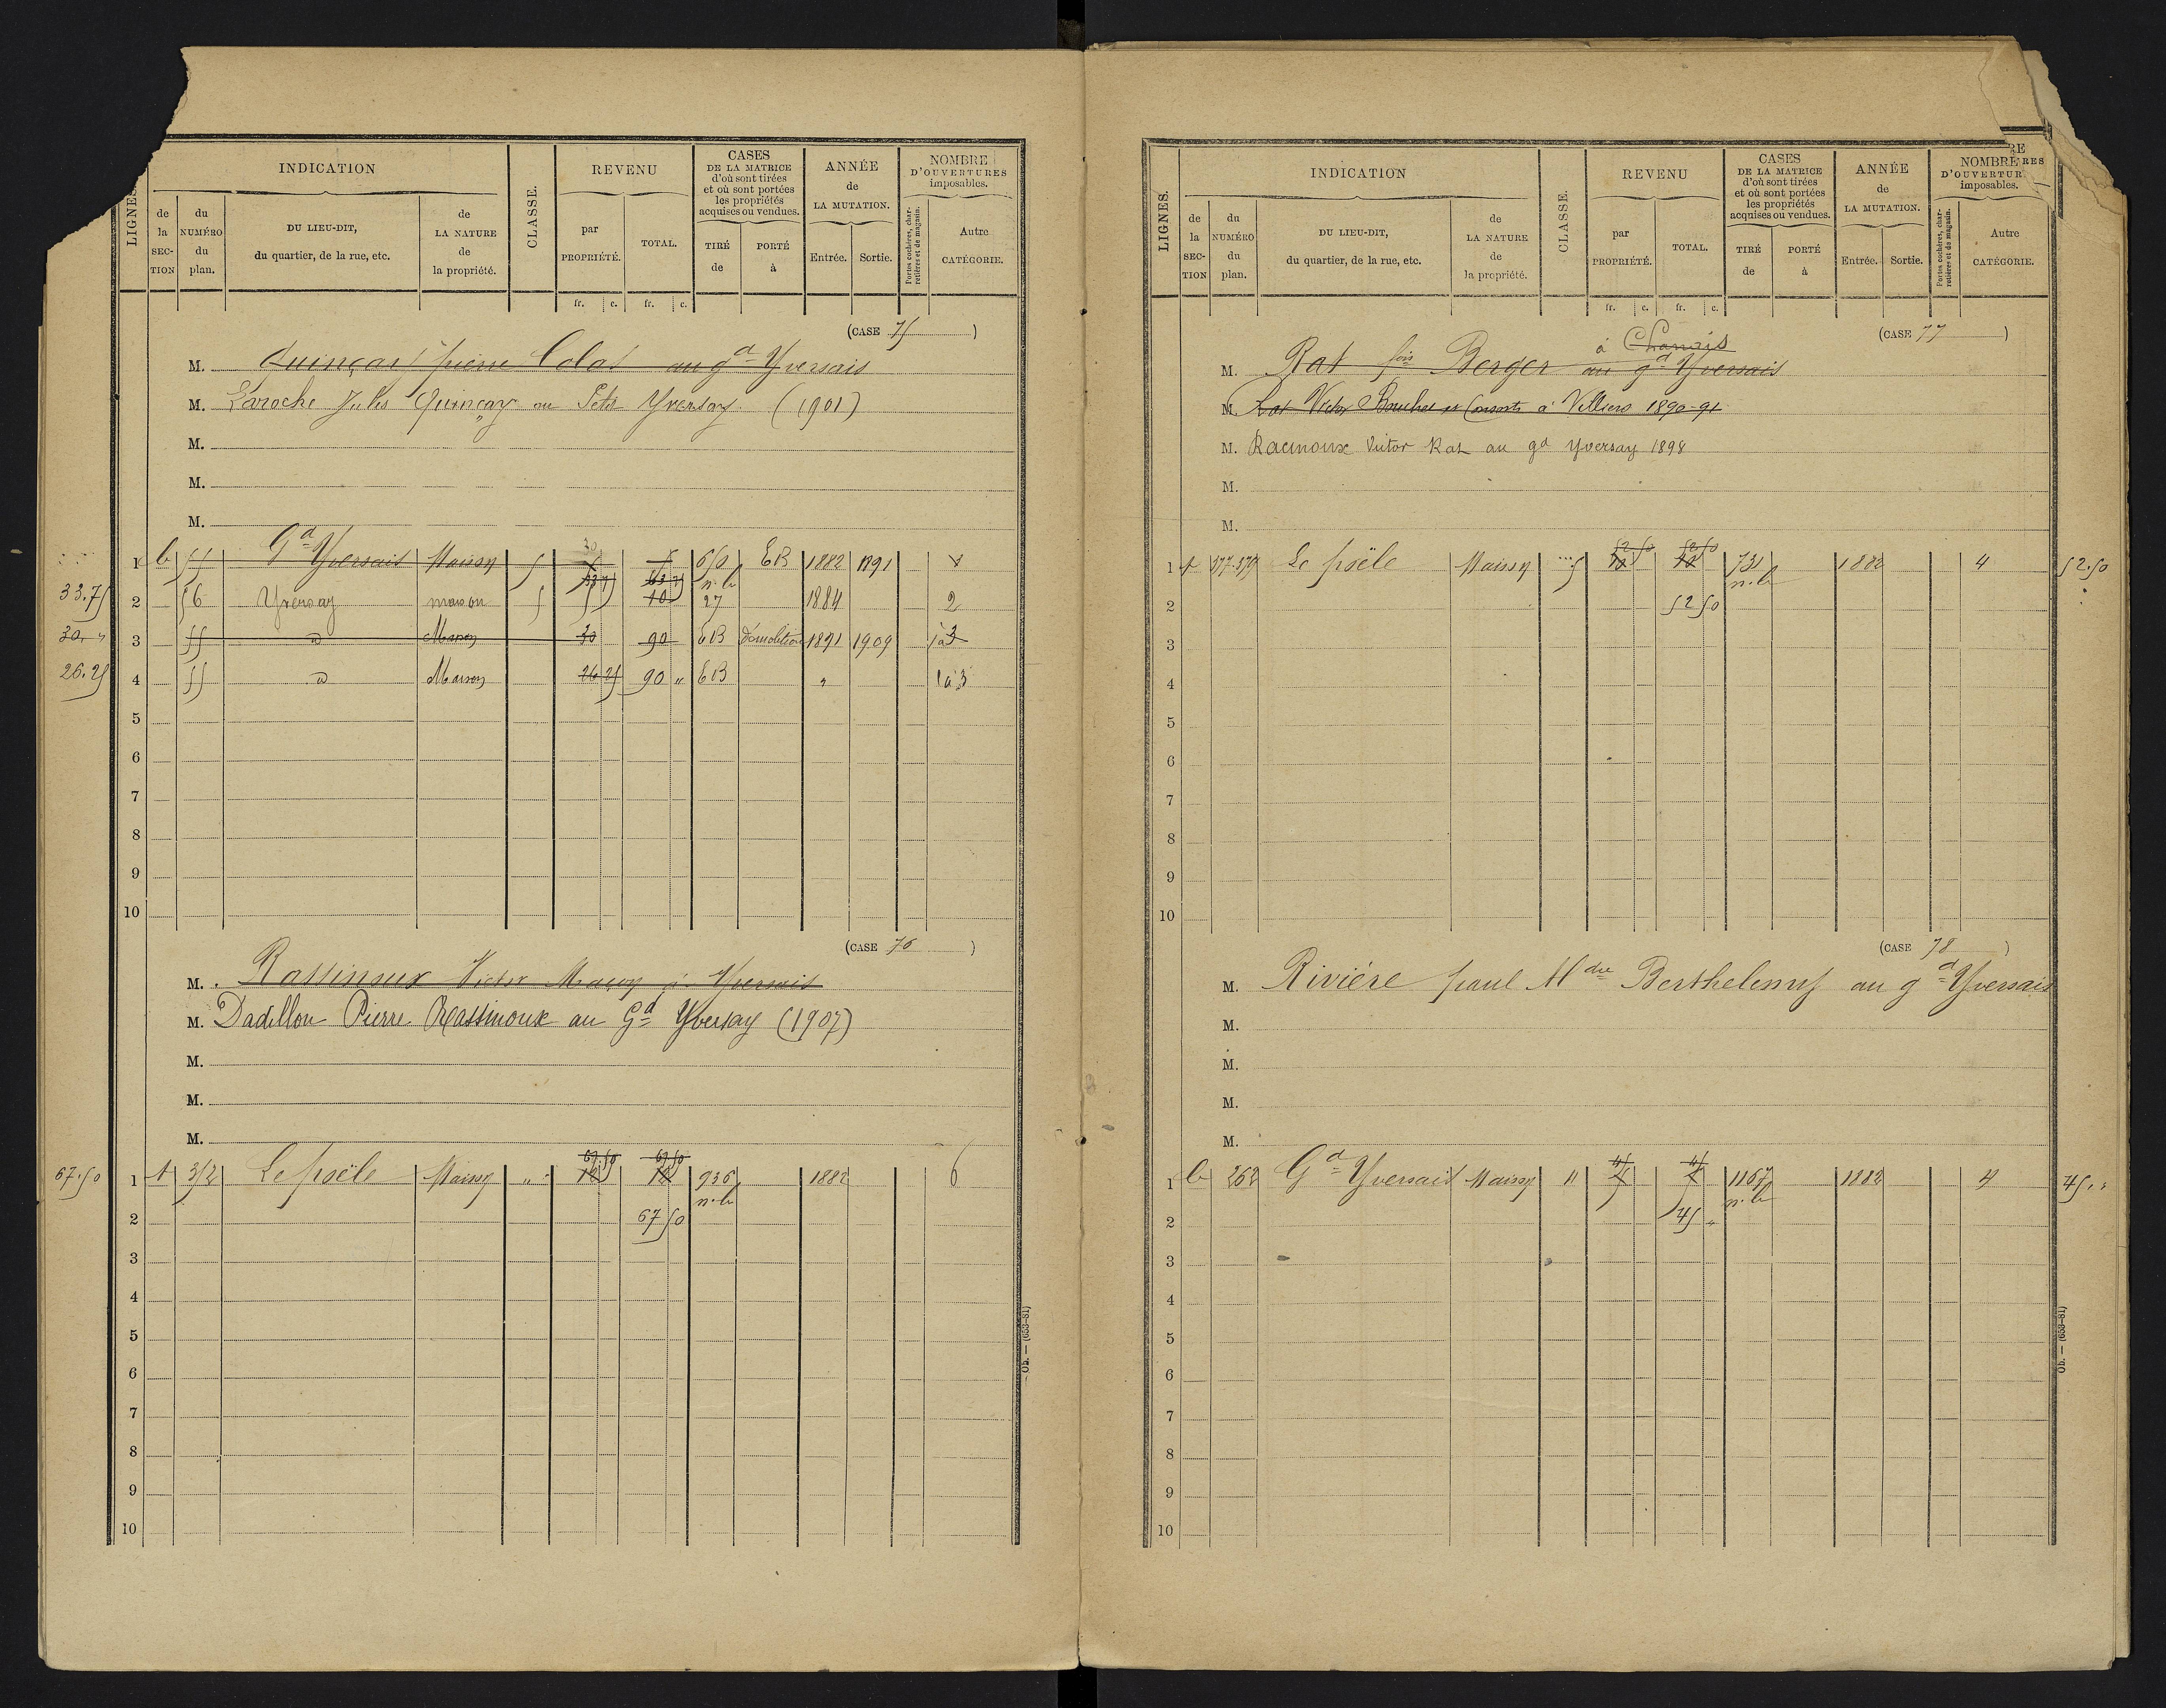 LIGNES.
INDICATION
de la SECTION
du NUMÉRO du plan.
DU LIEU-DIT, du quartier, de la rue, etc.
de LA NATURE de la propriété.
CLASSE.
REVENU
par PROPRIÉTÉ.
TOTAL.
fr. c. fr. c.
CASES DE LA MATRICE d'où sont tirées et où sont portées les propriétés acquises ou vendues.
TIRÉ de
PORTÉ à
ANNÉE de LA MUTATION.
Entrée. Sortie.
NOMBRE D'OUVERTURES imposables.
Portes cochères, charretières et de magasin.
Autre CATÉGORIE.
(CASE 75)
M. Quinçay pierre Colas au gd Yversais
M. Laroche Jules Quinçay au Petit Yversay. (1901)
M.
M.
M.
1 b 55 Gd Yversais Maison 5 650 EB 1882 1891
33.75 2 56 Yversay maison 5 10 27 1884 2
30 " 3 55 d Maison 30 90 EB Démolition 1891 1909 1à3
26.25 4 55 d Maison 26 25 90 " EB " 1à3
5
6
7
8
9
10
(CASE 76)
M. Rassinoux Victor à Yversais
M. Dadillon Pierre Rassinoux au Gd Yversay (1907)
M.
M.
M.
67.50 67.50
67.50 1 A 352 Le poële Maison " 12 12 936 1882 6
n.b
2 67 50
3
4
5
6
7
8
9
10
Ob. — (653-81)
LIGNES.
INDICATION
de la SECTION
du NUMÉRO du plan.
DU LIEU-DIT, du quartier, de la rue, etc.
de LA NATURE de la propriété.
CLASSE.
REVENU
par PROPRIÉTÉ.
TOTAL.
fr. c. fr. c.
CASES DE LA MATRICE d'où sont tirées et où sont portées les propriétés acquises ou vendues.
TIRÉ de
PORTÉ à
ANNÉE de LA MUTATION.
Entrée. Sortie.
NOMBRE D'OUVERTUR imposables.
RE
RES
Portes cochères, charretières et de magasin.
Autre CATÉGORIE.
(CASE 77)
à
M. Rat fois Berger au gd Yversais
M. Rat Victor Bouchet et Consorts à Villiers 1890-91
M. Racinoux Victor Rat au gd Yversay 1898
M.
M.
52 50 52 50
1 A 377.379 Le poële Maison 5 10 10 731 1882 4 52.50
n.b
2 52 50
3
4
5
6
7
8
9
10
(CASE 78)
M. Rivière paul Berthelemy au gd Yversais
M.
M.
M.
M.
45 45
1 b 262 Gd Yversais Maison " 1167 1882 4 45 "
n.b
2 45 "
3
4
5
6
7
8
9
10
Ob. — (653-81)